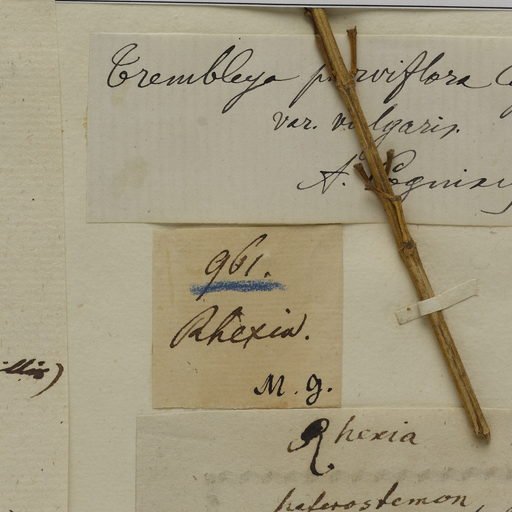 Trembleya parviflora
var. vulgaris.
A. Cogniaux
961.
Rhexia.
M. g.
Rhexia
heterostemon,